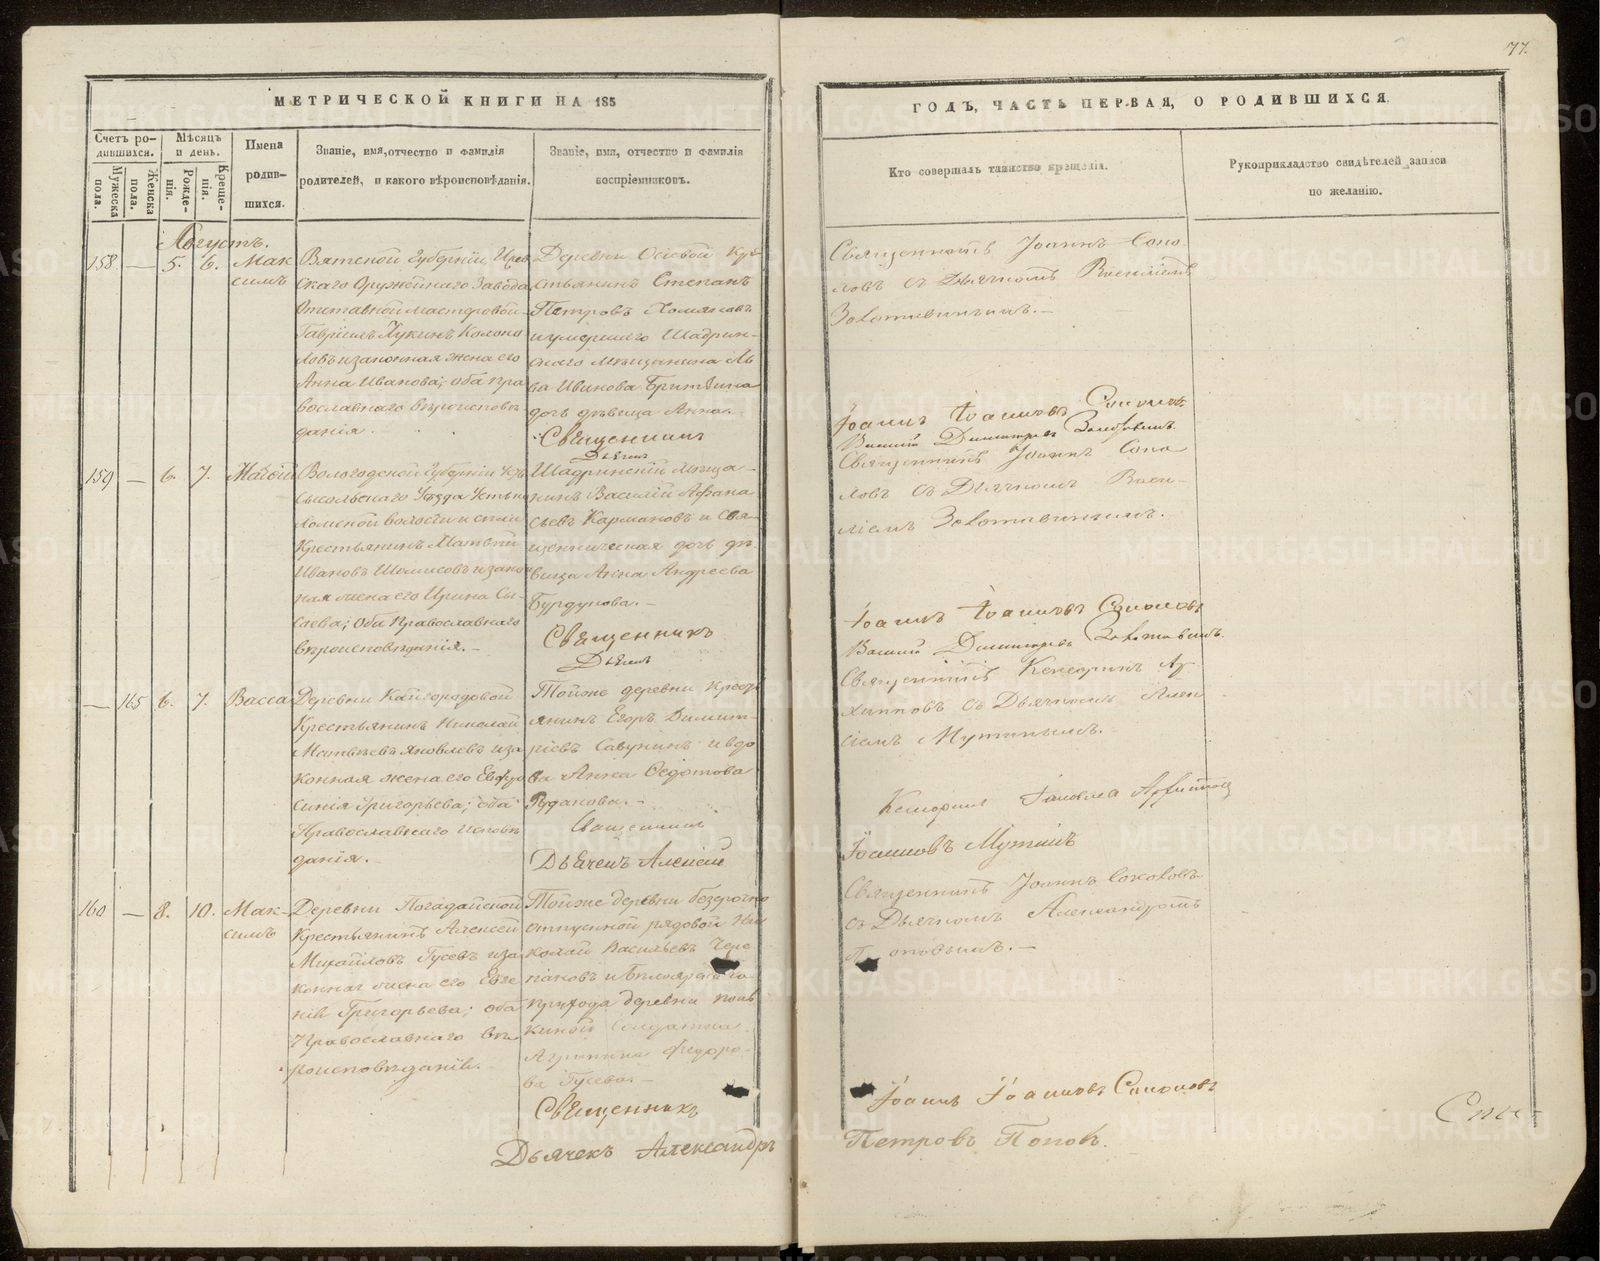 77.
МЕТРИЧЕСКОЙ КНИГИ НА 185
ГОДЪ, ЧАСТЬ ПЕРВАЯ, О РОДИВШИХСЯ.
Счетъ ро-
дившихся.
Мужеска
пола.
Женска
пола.
Мѣсяцъ
и день.
Рожде-
нія.
Креще-
нія.
Имена
родив-
шихся.
Званіе, имя, отчество и фамилія
родителей, и какого вѣроисповѣданія.
Званіе, имя, отчество и фамилія
воспріемниковъ.
Кто совершалъ таинство крещенія.
Рукоприкладство свидѣтелей записи
по желанію.
Августъ.
158. — 5. 6. Мак
симъ
Вятской Губерніи, Ижев
скаго Оружейнаго Завода
Отставной мастеровой
Гавріилъ Лукинъ
ловъ и законная жена его
Анна Иванова; оба пра
вославнаго вѣроисповѣ
данія.
Деревни Осѣевой Кре
стьянинъ Степанъ
Петровъ
и умершаго Шадрин-
скаго мѣщанина Ль
ва Иванова
дочь дѣвица Анна.
Священникъ
Дьячекъ
Священникъ Іоаннъ Соко
ловъ съ Дьячкомъ Василіемъ
Золотавинымъ.—
Іоаннъ Іоанновъ Соколовъ
Василій Димитріевъ Золотавинъ.
159 — 6. 7.
Вологодской Губерніи Усть
сысольскаго Уѣзда
волости и села
Крестьянинъ Матвѣй
Ивановъ и закон
ная жена его Ирина Сы-
соева; оба Православнаго
вѣроисповѣданія.—
Шадринскій мѣща-
нинъ Василій Афана
сьевъ Кармановъ и Свя-
щенническая дочь дѣ-
вица Анна Андреева
Бурдукова.—
Священникъ
Дьячекъ
Священникъ Іоаннъ Соко
ловъ съ Дьячкомъ Васи-
ліемъ Золотавинымъ.
Іоаннъ Іоанновъ Соколовъ
Василій Димитріевъ Золотавинъ.
— 165 6. 7. Васса
Деревни Кайгородовой
Крестьянинъ Николай
Матвѣевъ Яковлевъ и за
конная жена его Евфро
синія Григорьева; оба
Православнаго исповѣ
данія.—
Тойже деревни кресть
янинъ Егоръ Димит-
ріевъ Савунинъ и вдо
ва Анна Ѳедотова
Священникъ
Дьячекъ Алексій
Священникъ Ксенофонтъ
съ Дьячкомъ Алек
сіемъ Мутинымъ.
Іоанновъ Мутинъ
160 — 8. 10. Мак-
симъ
Деревни Погадайской
Крестьянинъ Алексей
Михайловъ Гусевъ и за
конная жена его Евге
нія Григорьева; оба
Православнаго вѣ
роисповѣданія.
Тойже деревни безсрочно
отпускной рядовой Ни
колай Васильевъ Чере-
пановъ и Бѣлоярскаго
прихода деревни
Солдатка
Агрипина Ѳедоро-
ва Гусева.—
Священникъ
Дьячекъ Александръ
Священникъ Іоаннъ Соколовъ
съ Дьячкомъ Александромъ
Поповымъ.—
Іоаннъ Іоанновъ Соколовъ
Петровъ Поповъ.
METRIKI.GASO-URAL.RU